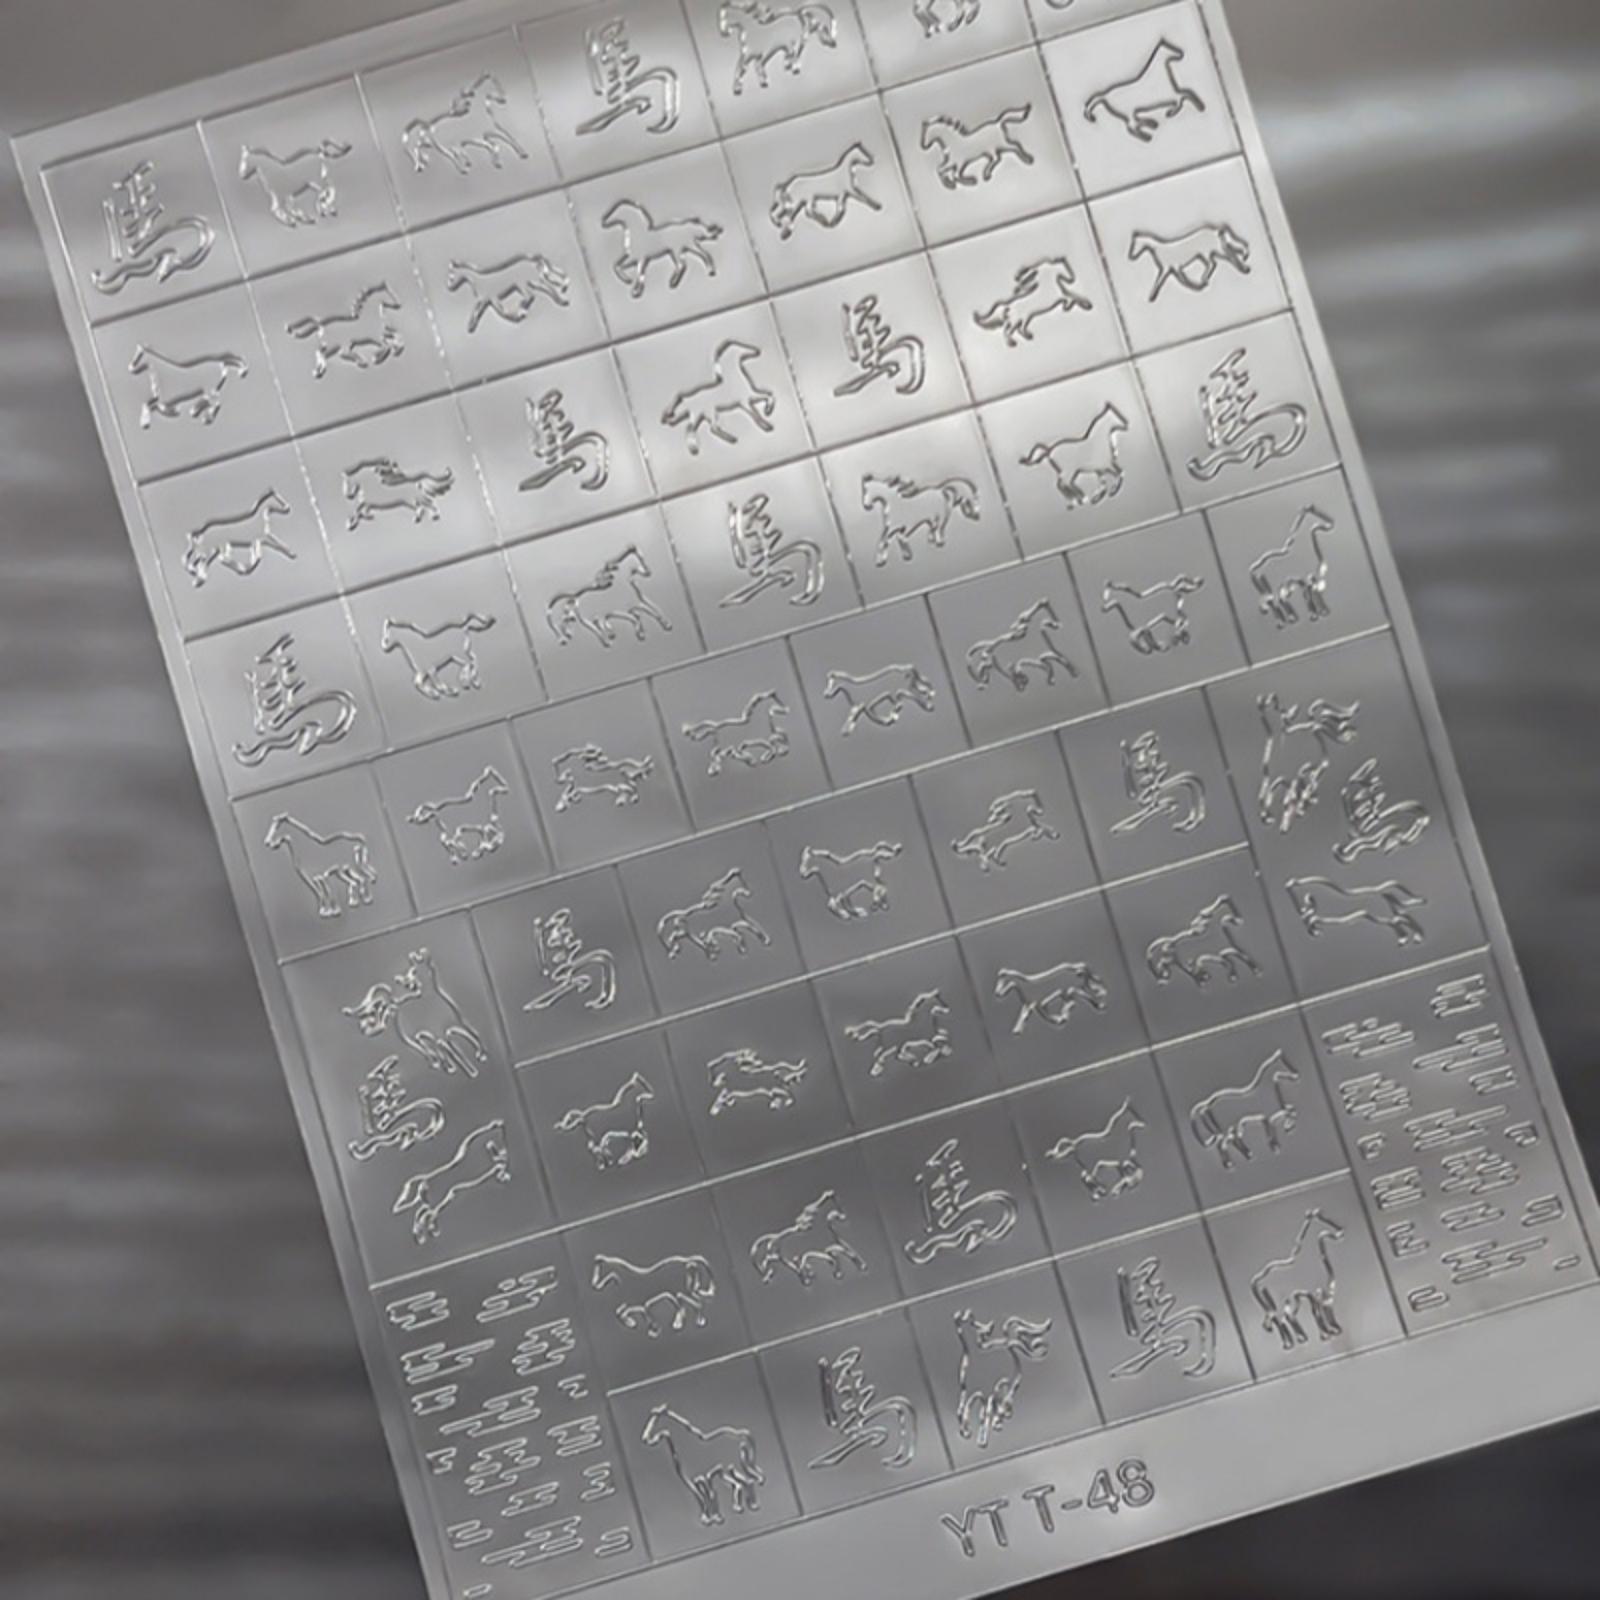 馬 馬
馬 馬
馬 馬 馬
馬 馬 馬
馬
馬
馬 馬
YTT-48